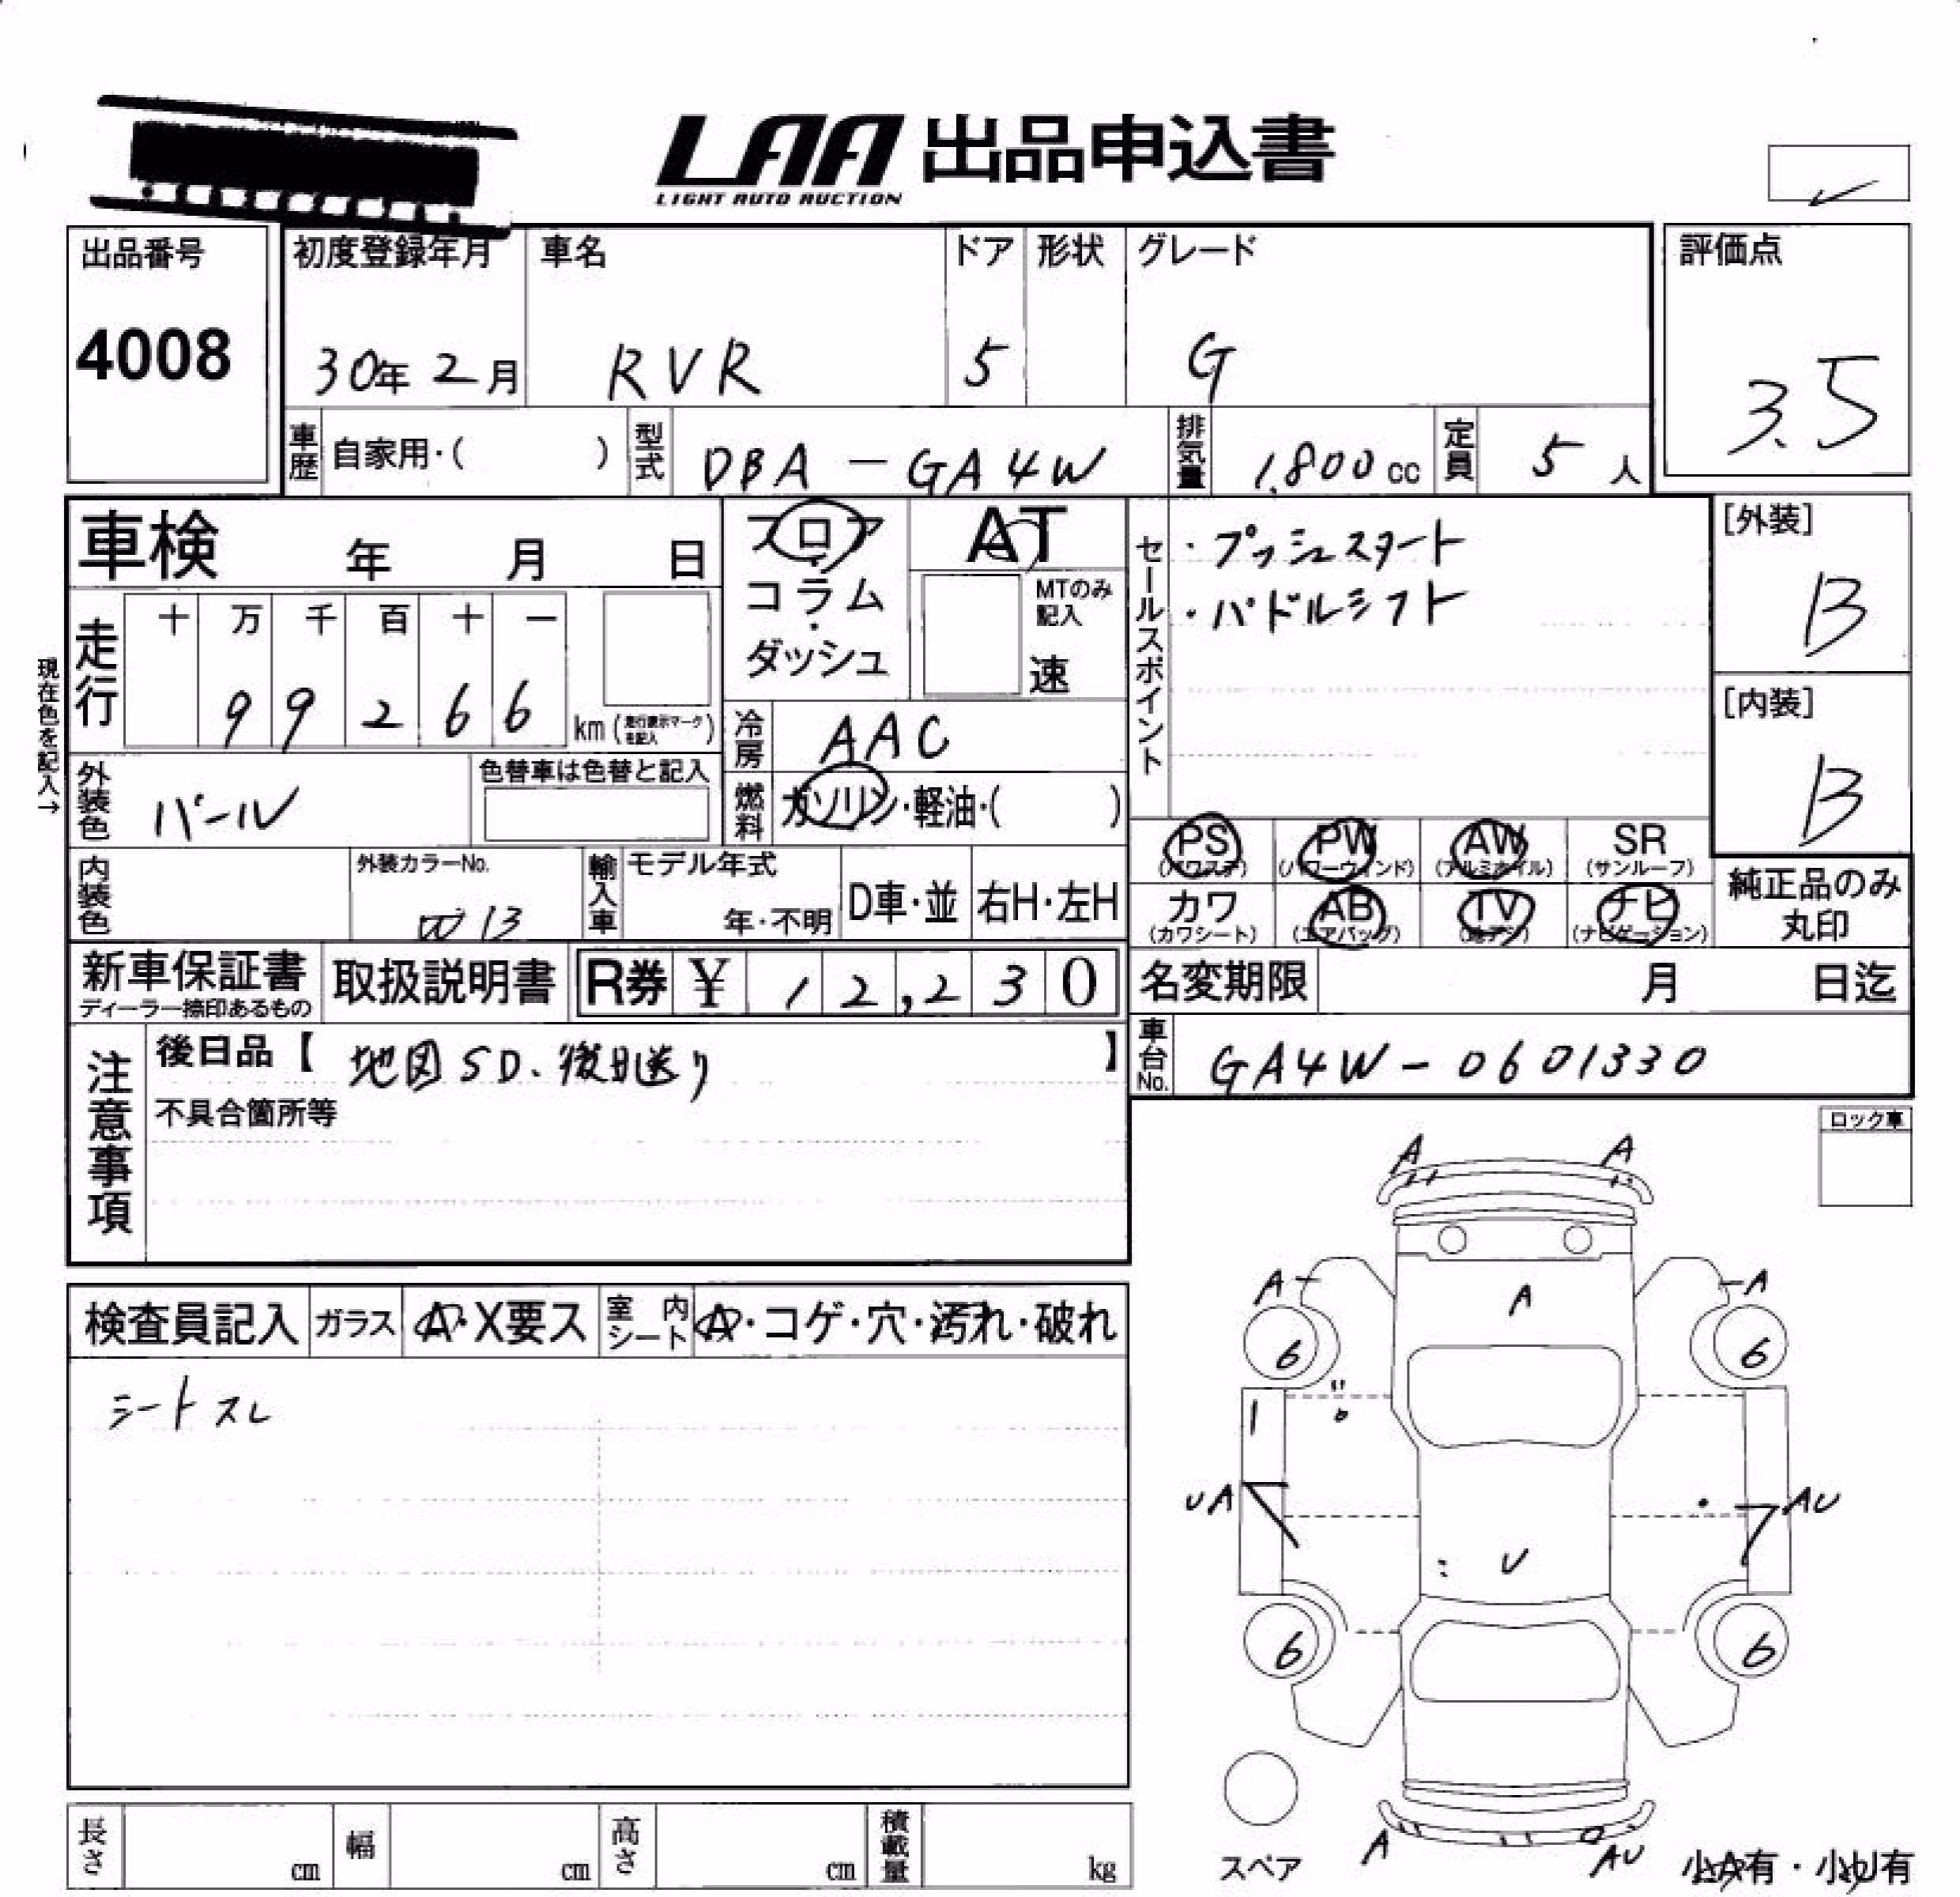 LAA 出品申込書
LIGHT AUTO AUCTION
出品番号 初度登録年月 車名 ドア 形状 グレード 評価点
4008 30年 2月 RVR 5 G 3.5
車歴 自家用・( ) 型式 DBA-GA4W 排気量 1,800cc 定員 5人
車検 年 月 日 フロア・コラム・ダッシュ AT
MTのみ記入 速
セールスポイント ・プッシュスタート
・パドルシフト
[外装] B
[内装] B
走行 十 万 千 百 十 一
9 9 2 6 6 km(走行表示マークを記入)
現在色を記入→
冷房 AAC
外装色 パール 色替車は色替と記入
燃料 ガソリン・軽油・( )
PS (パワステ) PW (パワーウィンド) AW (アルミホイル) SR (サンルーフ)
カワ (カワシート) AB (エアバッグ) TV (地デジ) ナビ (ナビゲーション)
純正品のみ丸印
内装色 外装カラーNo. W13 輸入車 モデル年式 年・不明 D車・並 右H・左H
新車保証書 取扱説明書 R券 ¥ 12,230 名変期限 月 日迄
ディーラー捺印あるもの
車台No. GA4W-0601330
注意事項 後日品【 地図SD、後日送り 】
不具合箇所等
ロック車
検査員記入 ガラス A・X要ス 室内シート A・コゲ・穴・汚れ・破れ
シートスレ
A A
A A A
6 6
UA AU
U
6 6
スペア
A AU
小A有・小U有
長さ cm 幅 cm 高さ cm 積載量 kg